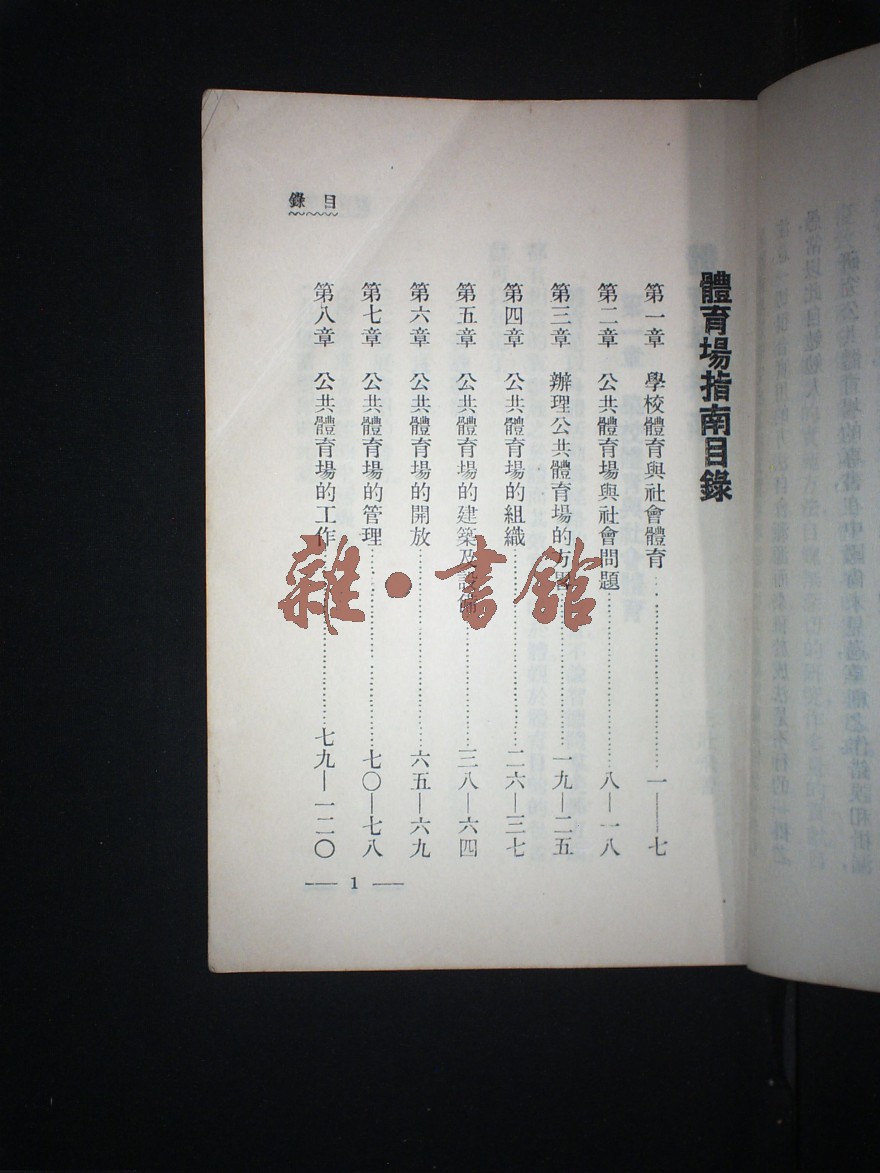 目錄
體育場指南目錄
第一章 學校體育與社會體育……一——七
第二章 公共體育場與社會問題……八—一八
第三章 辦理公共體育場的方……一九—二五
第四章 公共體育場的組織……二六—三七
第五章 公共體育場的建築及設……三八—六四
第六章 公共體育場的開放……六五—六九
第七章 公共體育場的管理……七〇—七八
第八章 公共體育場的工作……七九—一二〇
— 1 —
雜·書館